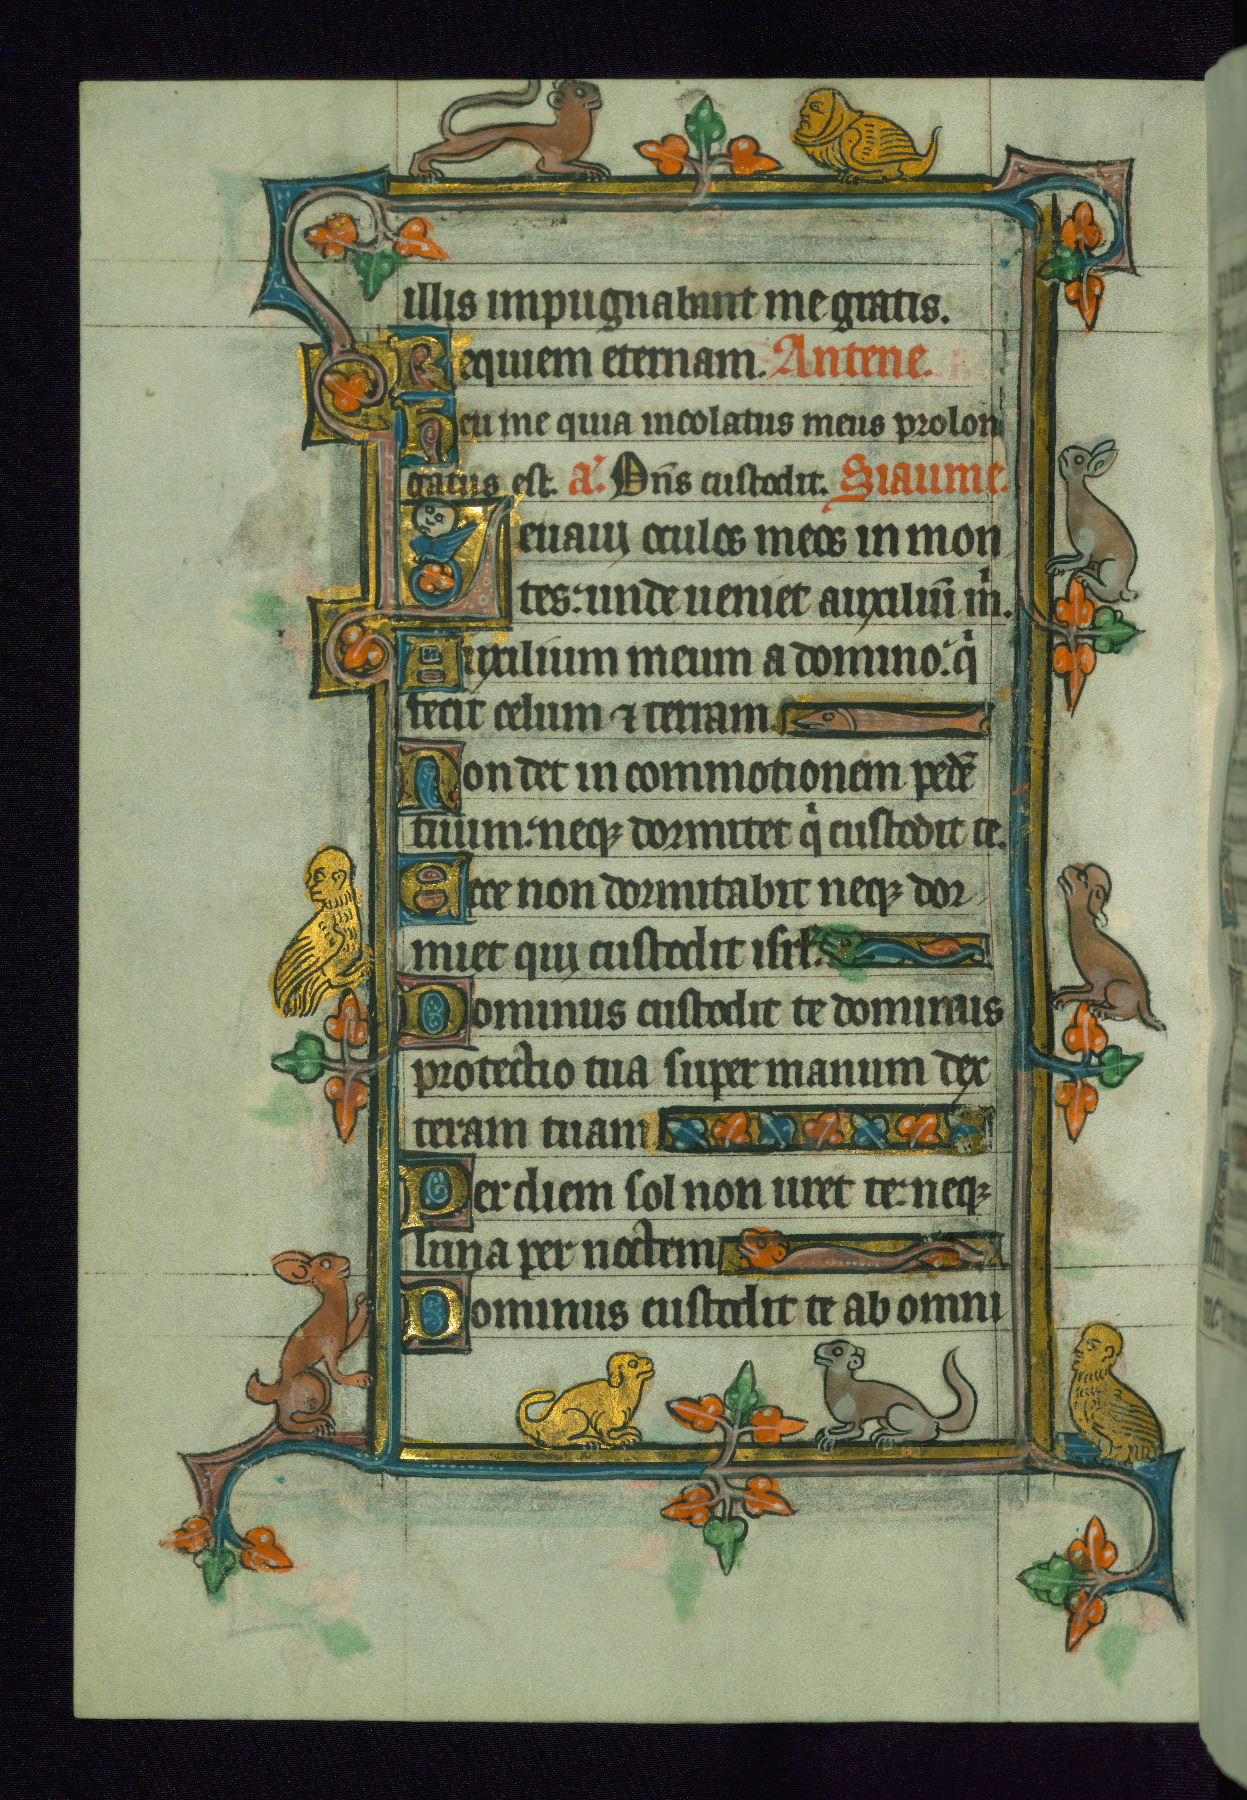 illis impugnabant me gratis.
Requiem eternam. Antene.
Heu me quia incolatus meus prolon
gatus est. a͛. Dn̄s custodit. Siaume.
Leuaui oculos meos in mon
tes: unde ueniet auxiliū m̍.
Auxilium meum a domino: q̍
fecit celum ⁊ terram
Non det in commotionem pedē
tuum: neqꝫ dormitet q̍ custodit te.
Ecce non dormitabit neqꝫ dor
miet qui custodit isrl̄.
Dominus custodit te dominus
protectio tua super manum dex
teram tuam
Per diem sol non uret te: neqꝫ
luna per noctem
Dominus custodit te ab omni